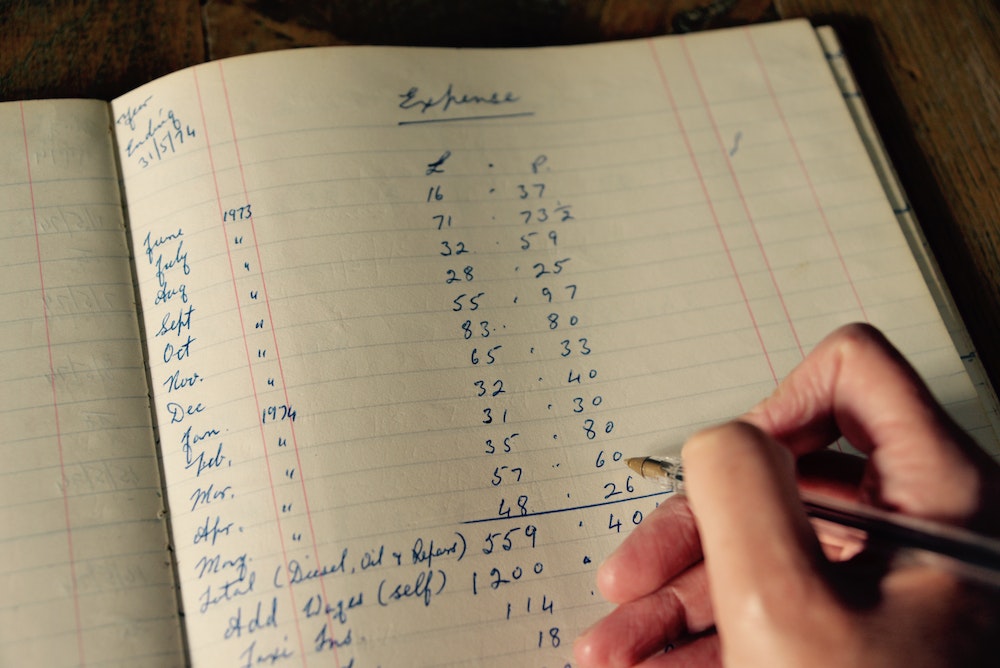 Year
Ending
31/5/74
Expense
£ . P.
June 1973 16 . 37
July " 71 73½
Aug " 32 . 59
Sept " 28 . 25
Oct " 55 . 97
Nov. " 83 . . 80
Dec " 65 . 33
Jan. 1974 32 . 40
Feb. " 31 . 30
Mar. " 35 . 80
Apr. " 57 . . 60
May. " 48 . 26
Total (Diesel, Oil & Repairs) 559 . 40
Add Wages (self) 1200 .
Taxi Ins. 114 .
18